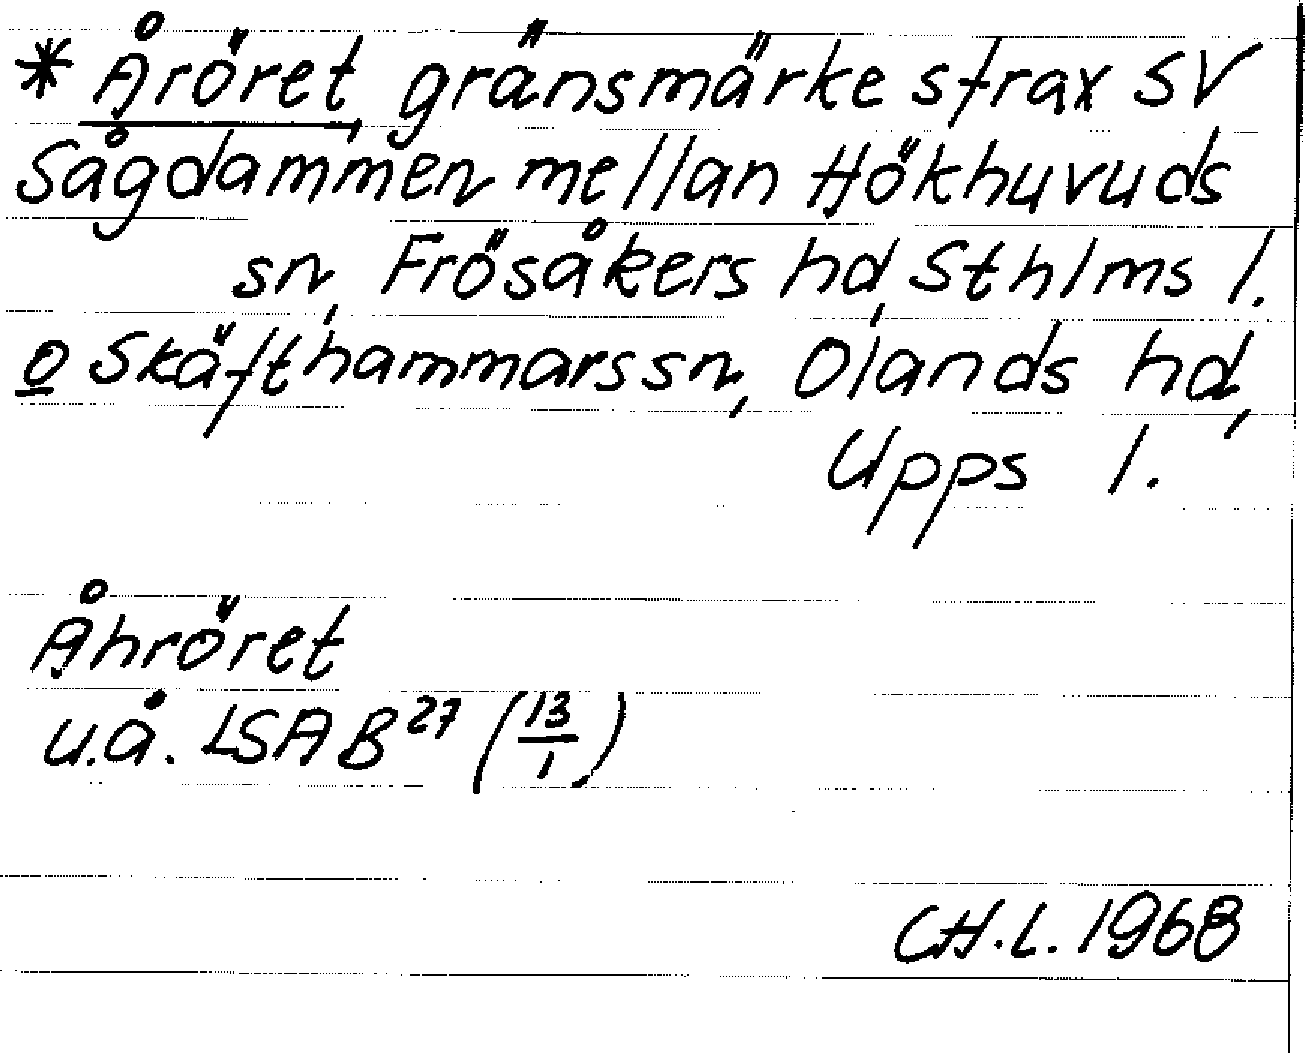 * Åröret, gränsmärke strax SV
Sågdammen mellan Hökhuvuds
sn, Frösåkers hd, Sthlms l.
o Skäfthammars sn, Olands hd,
Upps l.
Åhröret
u.å. LSA B²⁷ (13/1)
CH.L. 1968